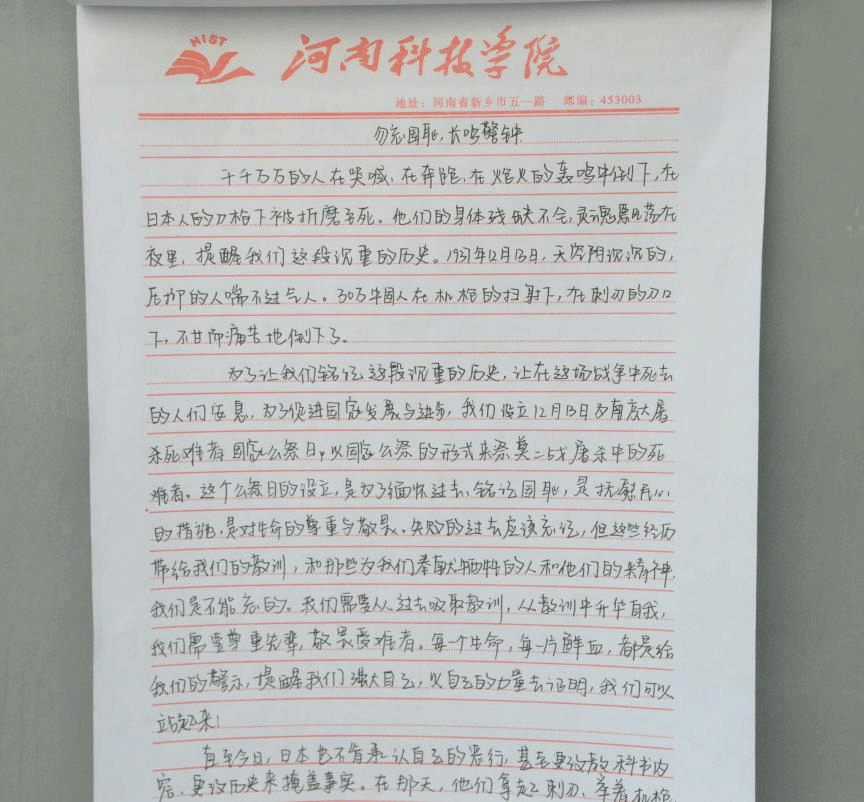 HIST
河南科技学院
地址：河南省新乡市五一路 邮编：453003
勿忘国耻，长鸣警钟
千千万万的人在哭喊，在奔跑，在炮火的轰鸣中倒下，在
日本人的刀枪下被折磨至死。他们的身体残缺不全，灵魂飘荡在
夜里，提醒我们这段沉重的历史。1937年12月13日，天空阴沉沉的，
压抑的人喘不过气。30万中国人在机枪的扫射下，在刺刀的刀口
下，不甘而痛苦地倒下了。
为了让我们铭记这段沉重的历史，让在这场战争中死去
的人们安息，为了促进国家发展与进步，我们设立12月13日为南京大屠
杀死难者国家公祭日，以国家公祭的形式来祭奠二战屠杀中的死
难者。这个公祭日的设立，是为了缅怀过去、铭记国耻，是抚慰民心
的措施，是对生命的尊重与敬畏。失败的过去应该忘记，但这些经历
带给我们的教训，和那些为我们奉献牺牲的人和他们的精神，
我们是不能忘的。我们需要从过去吸取教训，从教训中升华自我，
我们需要尊重先辈，敬畏受难者。每一个生命，每一片鲜血，都是给
我们的警示，提醒我们强大自己，以自己的力量去证明，我们可以
站起来！
直至今日，日本也不肯承认自己的恶行，甚至更改教科书内
容、更改历史来掩盖事实。在那天，他们拿起刺刀、举着机枪